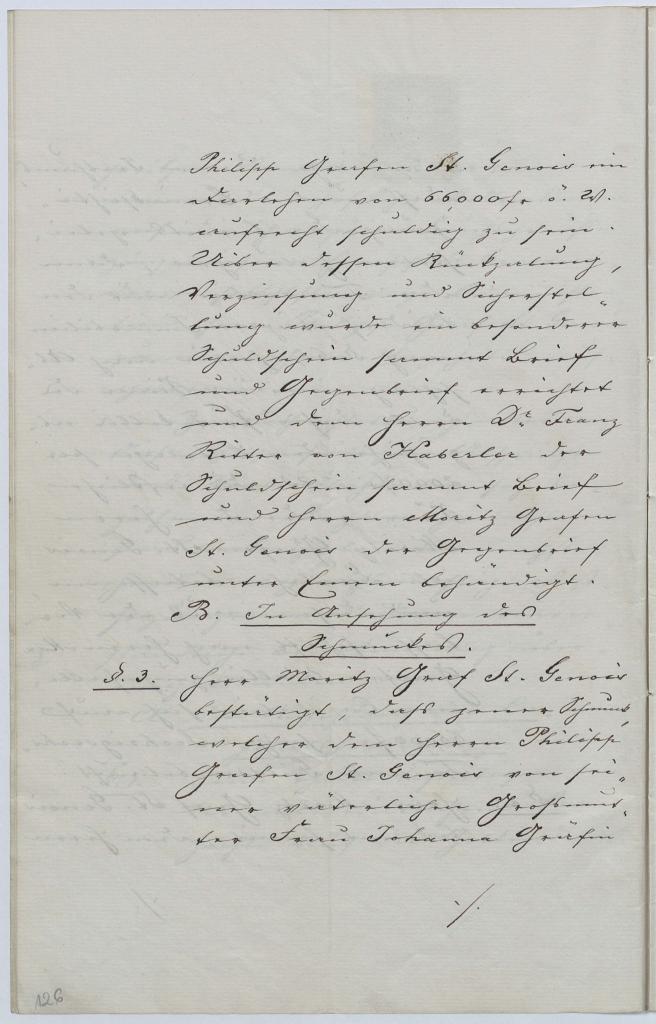 Philipp Grafen St. Genois ein
Darlehen von 66,000 fr ö. W.
aufrecht schuldig zu sein.
Uiber dessen Rückzalung,
Verzinsung und Sicherstel„
lung wurde ein besonderer
Schuldschein sammt Brief
und Gegenbrief errichtet
und dem Herrn Dr. Franz
Ritter von Haberler der
Schuldschein sammt Brief
und Herrn Moritz Grafen
St. Genois der Gegenbrief
unter Einem behändigt.
B. In Ansehung des
Schmuckes.
§. 3. Herr Moritz Graf St. Genois
bestätigt, dass jener Schmuck,
welcher dem Herrn Philipp
Grafen St. Genois von sei„
ner väterlichen Grossmut„
ter Frau Johanna Gräfin
./.
126